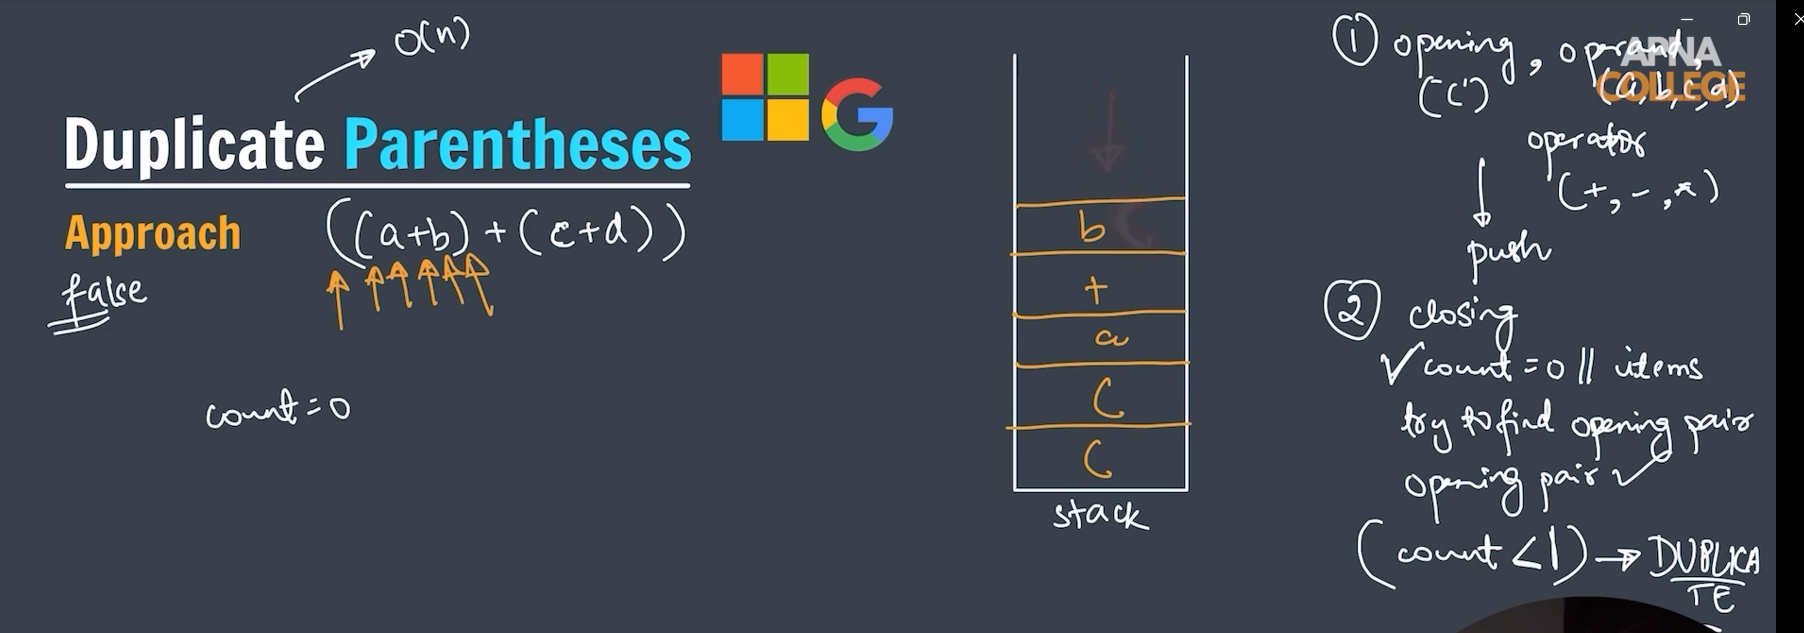 O(n)
Duplicate Parentheses
Approach ((a+b)+(c+d))
false
count=0
b
+
a
(
(
stack
① opening, operand,
('(') (a,b,c,d)
operator
(+,-,*)
push
② closing
✓ count=0 // items
try to find opening pair
opening pair ✓
(count<1)→DUPLICA
TE
APNA
COLLEGE